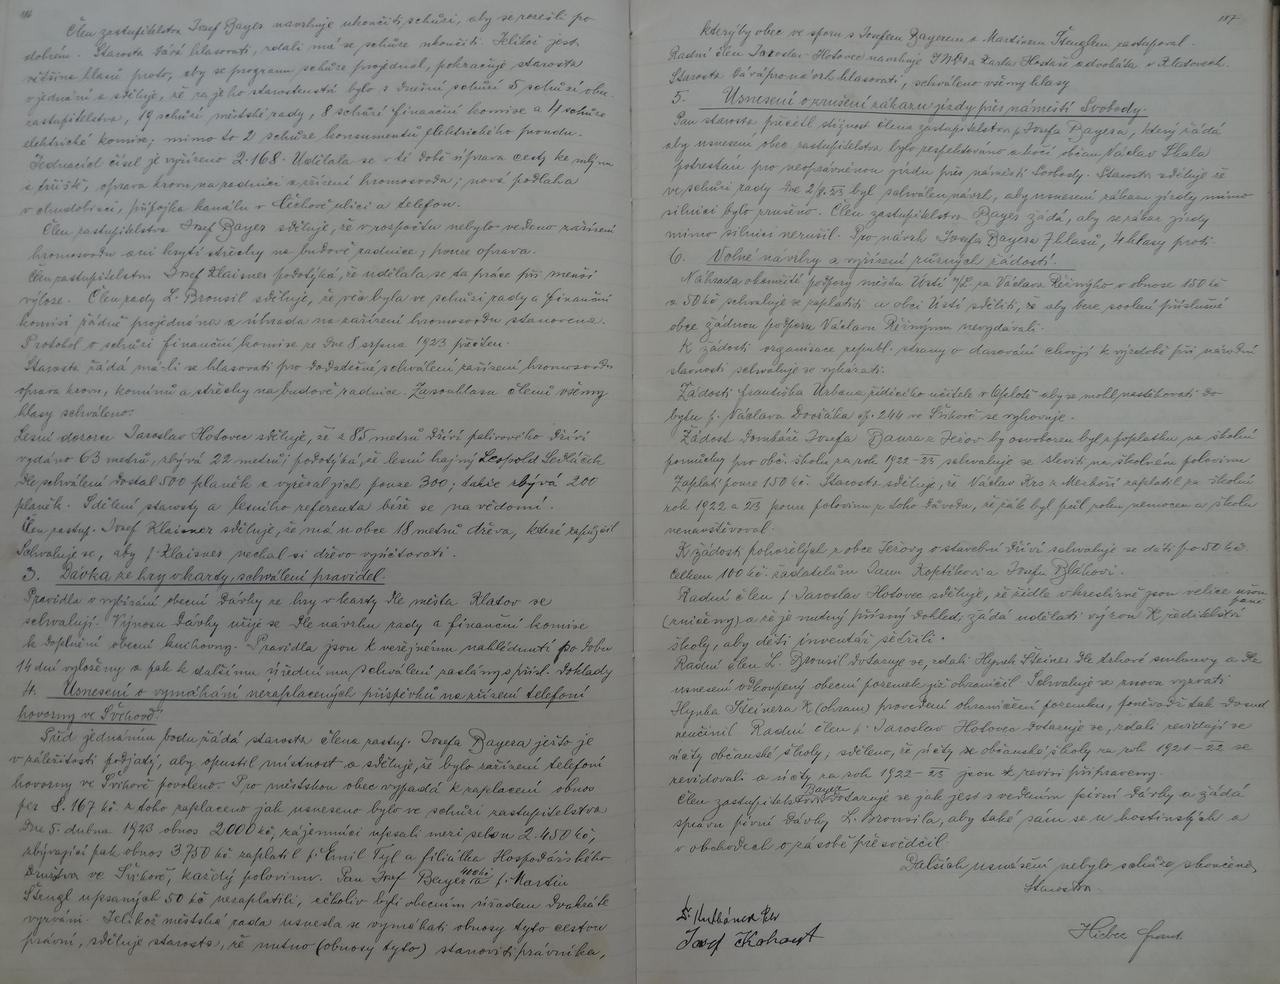 186
Člen zastupitelstva Josef Bayer navrhuje ukončiti schůzi, aby se rozešli po
dobrém. Starosta dává hlasovati, zdali má se schůze ukončiti. Jelikož jest
většina hlasů proto, aby se program schůze projednal, pokračuje starosta
v jednání a sděluje, že za jeho starostenství bylo s dnešní schůzí 5 schůzí obec.
zastupitelstva, 19 schůzí městské rady, 8 schůzí finanční komise a 4 schůze
elektrické komise; mimo to 2 schůze konsumentů elektrického proudu.
Jednacích čísel je vyřízeno 2.168. Udělala se v té době úprava cesty ke mlýnu
oprava krovu na radnici a zřízení hromosvodu; nová podlaha
v chudobinci, přípojka kanálu v Čechově ulici a telefon.
Člen zastupitelstva Josef Bayer sděluje, že v rozpočtu nebylo vedeno zařízení
hromosvodu ani krytí střechy na budově radnice; pouze oprava.
Člen zastupitelstva Josef Klaisner podotýká, že udělala se ta práce při menší
výloze. Člen rady L. Brousil sděluje, že věc byla ve schůzi rady a finanční
komisi řádně projednána a úhrada na zařízení hromosvodu stanovena.
Protokol o schůzi finanční komise ze dne 8 srpna 1923 přečten.
Starosta žádá má-li se hlasovati pro dodatečné schválení zařízení hromosvodu
oprava krovu, komínů a střechy na budově radnice. Za souhlasu členů všemy
hlasy schváleno.
Lesní dozorce Jaroslav Hotovec sděluje, že z 85 metrů dříví palivového dříví
vydáno 63 metrů, zbývá 22 metrů; podotýká, že lesní hajný Leopold Sedláček
dle schválení dostal 500 planěk a vyřezal jich pouze 300; takže zbývá 200
planěk. Sdělení starosty a lesního referenta béře se na vědomí.
Člen zastup. Josef Klaisner sděluje, že má u obce 18 metrů dřeva, které zapůjčil
Schvaluje se, aby p. Klaisner nechal si dřevo vyúčtovati.
3. Dávka ze hry v karty, schválení pravidel.
Pravidla o vybírání obecní dávky ze hry v karty dle města Klatov se
schvalují. Výnosu dávky užije se dle návrhu rady a finanční komise
k doplnění obecní knihovny. Pravidla jsou k veřejnému nahlédnutí po dobu
14 dní vyloženy a pak k dalšímu úřednímu schválení zaslány s přísl. doklady
4. Usnesení o vymáhání nezaplacených příspěvků na zřízení telefoní
hovorny ve Švihově.
Před jednáním bodu žádá starosta člena zastup. Josefa Bayera ježto je
v záležitosti podjatý, aby opustil místnost a sděluje, že bylo zařízení telefoní
hovorny ve Švihově povoleno. Pro městskou obec vypadá k zaplacení obnos
per 8.167 Kč z toho zaplaceno jak usneseno bylo ve schůzi zastupitelstva
dne 5. dubna 1923 obnos 2000 Kč, zájemníci upsali mezi sebou 2.450 Kč,
zbývající pak obnos 3750 Kč zaplatil p. Emil Tyl a filiálka Hospodářského
družstva ve Švihově každý polovinu. Pan Josef Bayer 400 Kč a p. Martin
Štengl upsaných 50 Kč nezaplatili, ačkoliv byli obecním úřadem dvakráte
vyzváni. Jelikož městská rada usnesla se vymáhati obnosy tyto cestou
právní, sděluje starosta, že nutno (obnosy tyto) stanoviti právníka,
187
který by obec ve sporu s Josefem Bayerem a Martinem Štenglem zastupoval.
Radní člen Jaroslav Hotovec navrhuje JUDra Karla Hostaše advokáta v Klatovech.
Starosta dává pro návrh hlasovati, schváleno všemy hlasy
5. Usnesení o zrušení zákazu jízdy přes náměstí Svobody.
Pan starosta přečetl stížnost člena zastupitelstva p. Josefa Bayera, který žádá
aby usnesení obec. zastupitelstva bylo respektováno a kočí občan Václav Skala
potrestán pro neoprávněnou jízdu přes náměstí Svobody. Starosta sděluje že
ve schůzi rady dne 2/8. 23 byl schválen návrh, aby usnesení zákazu jízdy mimo
silnici bylo zrušeno. Člen zastupitelstva Bayer žádá, aby se zákaz jízdy
mimo silnici nerušil. Pro návrh Josefa Bayera 7 hlasů, 4 hlasy proti.
6. Volné návrhy a vyřízení různých žádostí.
Náhrada okamžité podpory městu Ústí n/L za Václava Říčného v obnose 150 Kč
a 50 Kč schvaluje se zaplatiti a obci Ústí sděliti, aby bez svolení příslušné
obce žádnou podporu Václavu Říčnýmu nevydávali.
K žádosti organisace republ. strany o darování chvojí k výzdobě při národní
slavnosti schvaluje se vyhověti.
Žádosti Františka Urbana řídícího učitele v aby se mohl nastěhovati do
bytu p. Václava Dvořáka čp. 244 ve Švihově se vyhovuje.
Žádost domkáře Josefa Baura z Ježov by osvobozen byl poplatku na školní
pomůcky pro obč. školu za rok 1922-23 schvaluje se sleviti na školném polovinu
Zaplatí pouze 150 Kč. Starosta sděluje, že Václav Krs z Merkovic zaplatil za školní
rok 1922 a 23 pouze polovinu z toho důvodu, že žák byl půl roku nemocen a školu
nenavštěvoval.
K žádosti pohořelých z obce Ježovy o stavební dříví schvaluje se dáti po 50 Kč.
Celkem 100 Kč. žadatelům Janu Koptíkovi a Josefu Bláhovi.
Radní člen p. Jaroslav Hotovec sděluje, že židle v kreslírně jsou velice
(zničeny) a že je nutný přísný dohled; žádá udělati výzvu k ředitelství
školy, aby děti inventář šetřili.
Radní člen L. Brousil dotazuje se, zdali Hynek Šteiner dle trhové smlouvy a dle
usnesení odkoupený obecní pozemek již ohraničil. Schvaluje se znova vyzvati
Hynka Šteinera k (ohran) provedení ohraničení pozemku, poněvadž tak dosud
neučinil. Radní člen p. Jaroslav Hotovec dotazuje se, zdali revidují se
účty občanské školy, sděleno, že účty občanské školy za rok 1921-22 se
revidovali a účty za rok 1922-23 jsou k revisi připraveny.
Člen zastupitelstva Bayer dotazuje se jak jest s vedením pivní dávky a žádá
správu pivní dávky L. Brousila, aby také sám se u hostinských a
v obchodech o zásobě přesvědčil.
Dalších usnesení nebylo schůze skončena,
Starosta.
Josef Kohout